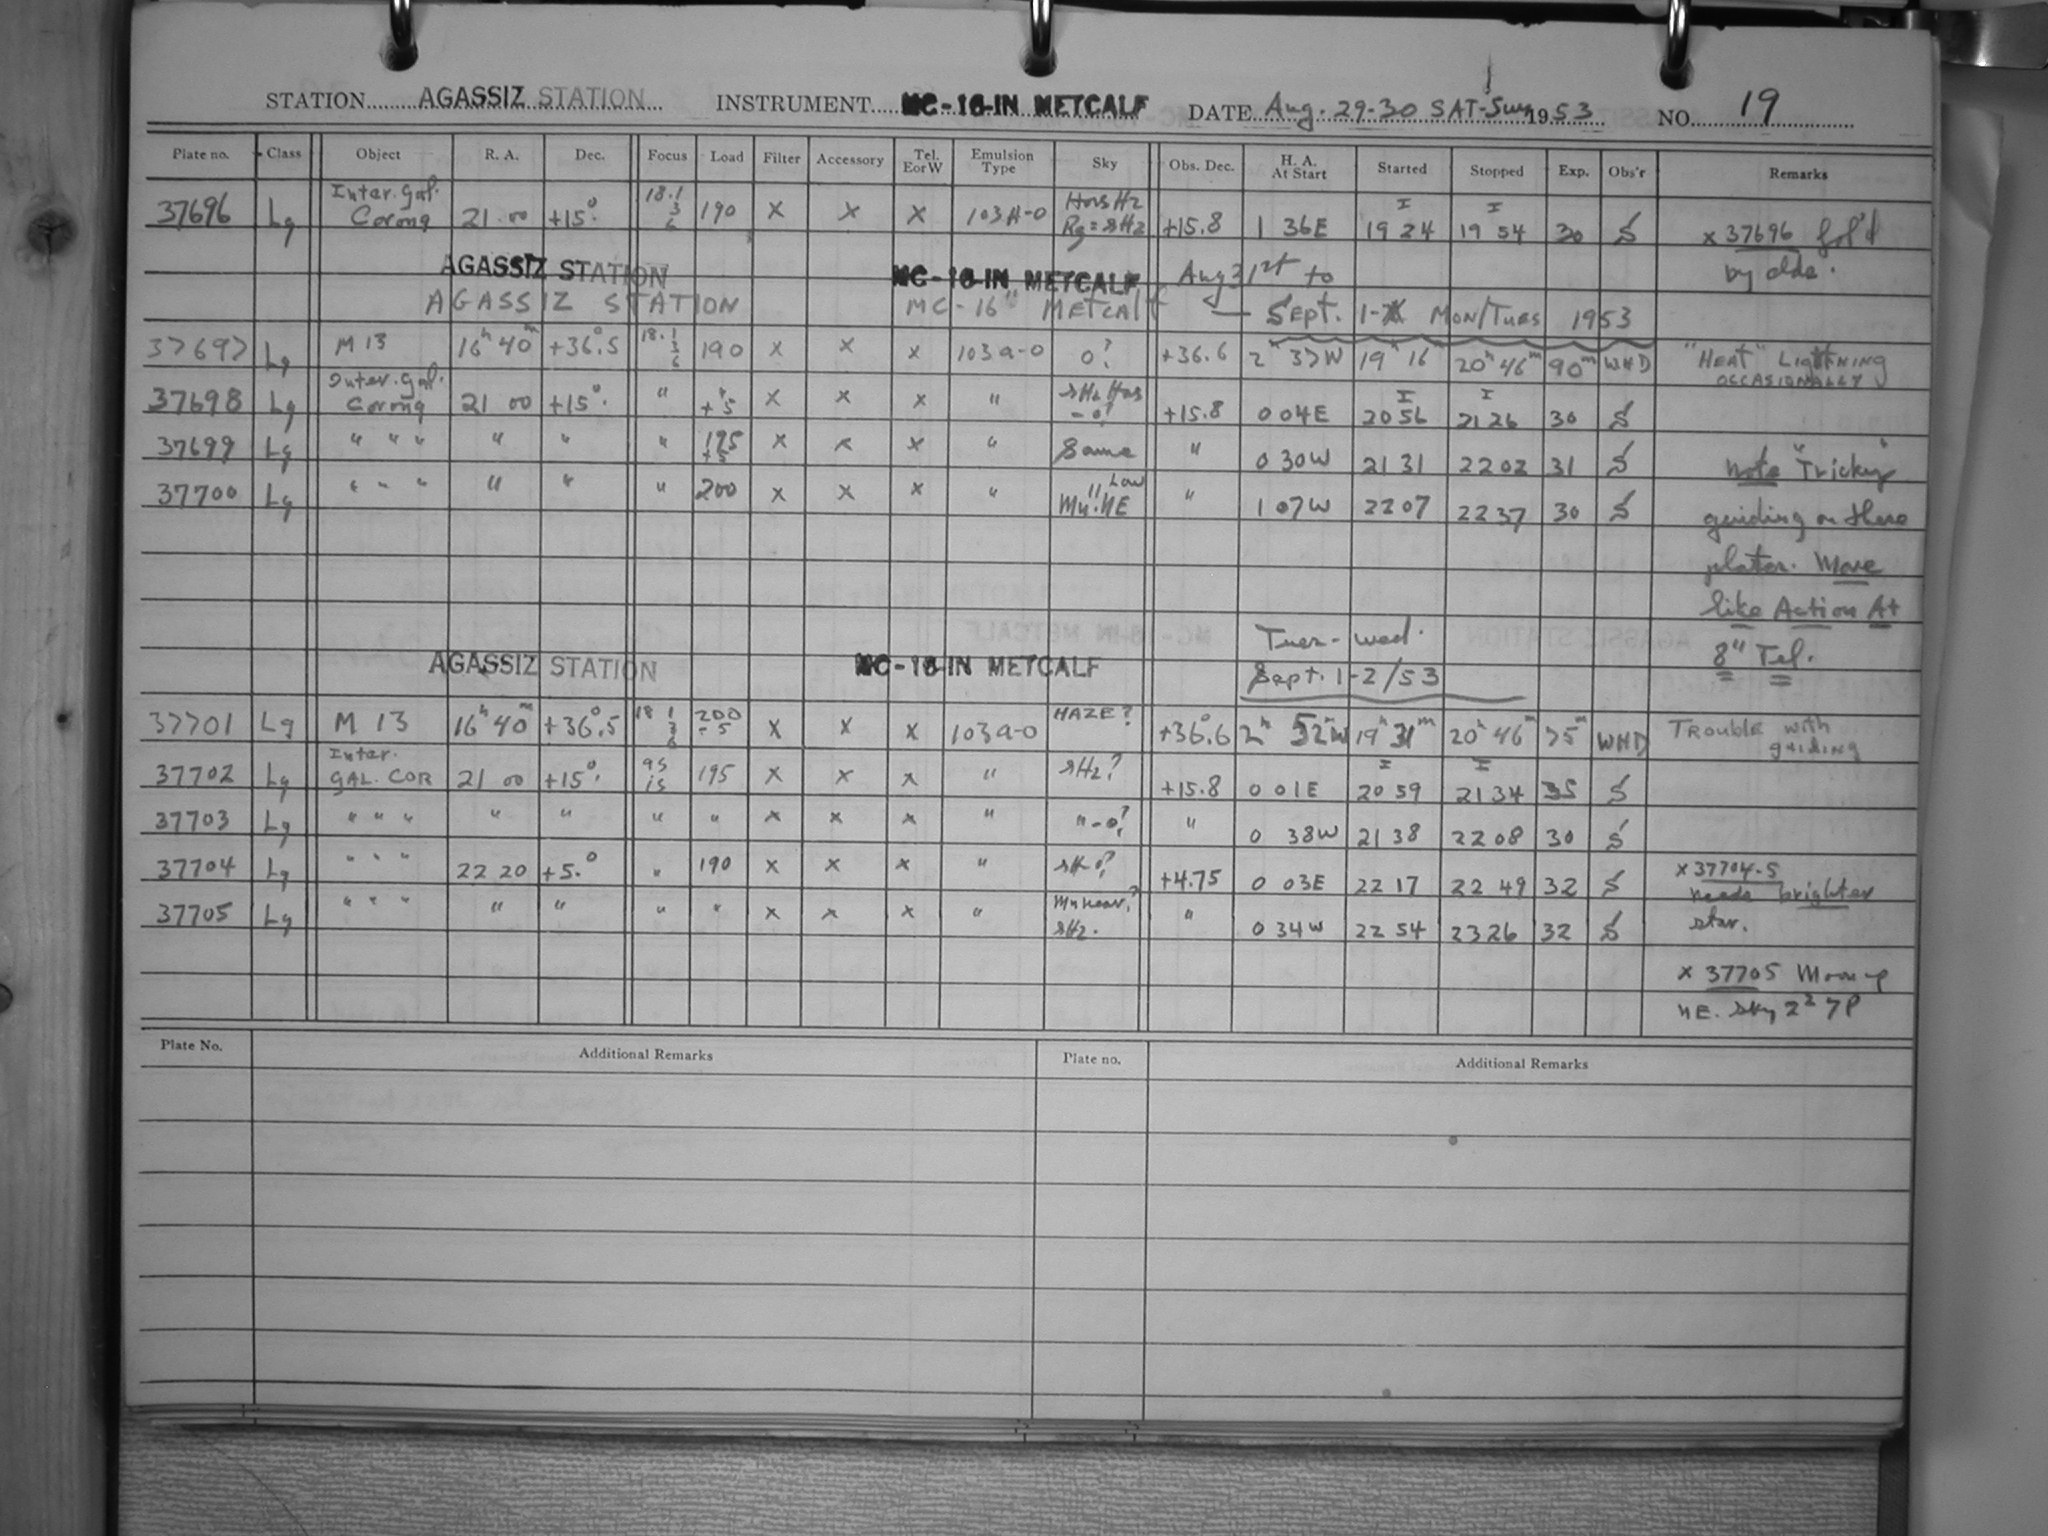 STATION AGASSIZ STATION INSTRUMENT MC-16-IN METCALF DATE Aug. 29-30 SAT-Sun 1953 NO. 19
Plate no. Class Object R. A. Dec. Focus Load Filter Accessory Tel. E or W Emulsion Type Sky Obs. Dec. H. A. At Start Started Stopped Exp. Obs'r Remarks
37696 Lg Inter. Gal. Corona 21 00 +15° 18.1 3 6 190 x x x 103A-O +15.8 1 36E 19 24 19 54 30 S x 37696 fol'd
by clds.
AGASSIZ STATION MC-16-IN METCALF Aug 31st to
AGASSIZ STATION MC-16" METCALF — SEPT. 1 MON/TUES 1953
37697 Lg M 13 16h 40m +36°.5 18.1 3 6 190 x x x 103a-O 0? +36.6 2h 37W 19h 16 20h 46m 90m WHD "HEAT" LIGHTNING OCCASIONALLY
37698 Lg Inter. Gal. Corona 21 00 +15° " +5 x x x " +15.8 0 04E 20 56 21 26 30 S
37699 Lg " " " " " " 195 +5 x x x " Same " 0 30W 21 31 22 02 31 S Note "Tricky"
37700 Lg " " " " " " 200 x x x " " Low Mn. NE " 1 07W 22 07 22 37 30 S guiding on these
plates. More
like Action At
8" Tel.
Tues-Wed.
AGASSIZ STATION MC-16-IN METCALF Sept. 1-2/53
37701 Lg M 13 16h 40m +36°.5 18 1 3 6 200 -5 x x x 103a-O HAZE? +36°.6 2h 52mW 19h 31m 20h 46m 75m WHD TROUBLE with guiding
37702 Lg Inter. GAL. COR 21 00 +15° as is 195 x x x " sHz? +15.8 0 01E 20 59 21 34 35 S
37703 Lg " " " " " " " x x x " "-0? " 0 38W 21 38 22 08 30 S
37704 Lg " " " 22 20 +5.° " 190 x x x " +4.75 0 03E 22 17 22 49 32 S x 37704-5
needs brighter
37705 Lg " " " " " " " x x x " Mn near? sHz. " 0 34W 22 54 23 26 32 S star.
x 37705 Moon up
NE. sky
Plate No. Additional Remarks Plate no. Additional Remarks